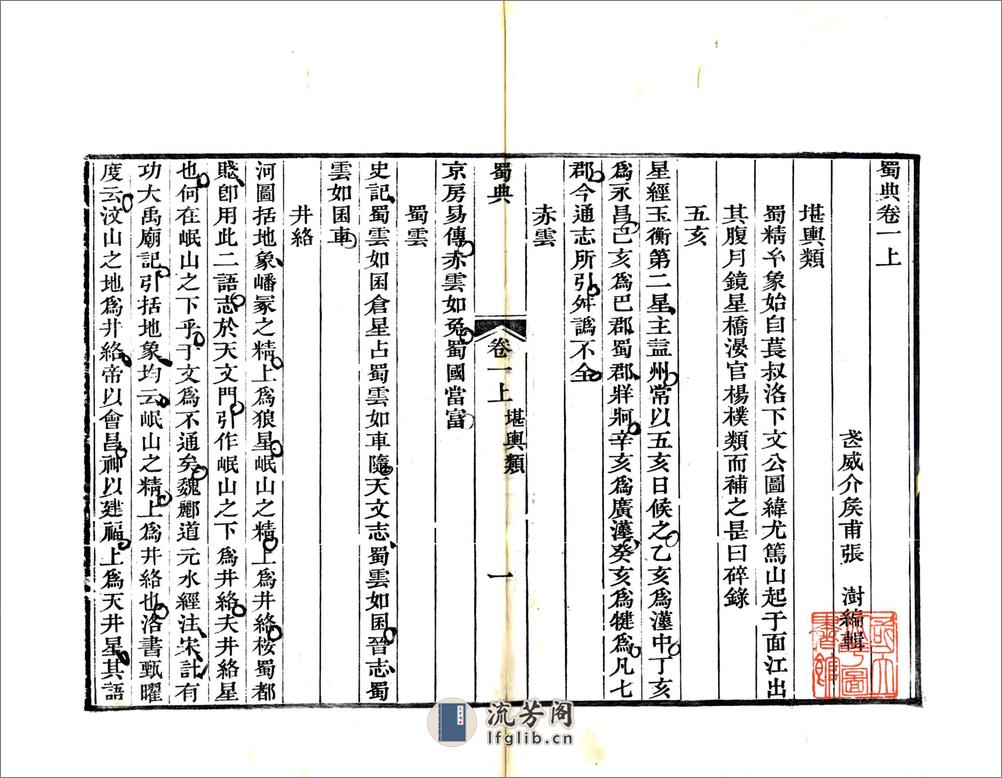 蜀典卷一上
武威介矦甫張　澍編輯
堪輿類
蜀精𠫵象始自萇叔洛下文公圖緯尤篤山起于面江出
其腹月鏡星橋漫官楊樸類而補之是曰碎錄
五亥
星經玉衡第二星主益州常以五亥日候之乙亥爲漢中丁亥
爲永昌己亥爲巴郡蜀郡牂牁辛亥爲廣漢癸亥爲犍爲凡七
郡今通志所引舛譌不全
赤雲
京房易傳赤雲如兔蜀國當富
蜀典
卷一上
堪輿類
一
蜀雲
史記蜀雲如囷倉星占蜀雲如車隨天文志蜀雲如囷晉志蜀
雲如囷車
井絡
河圖括地象嶓冢之精上爲狼星岷山之精上爲井絡桉蜀都
賦卽用此二語志於天文門引作岷山之下爲井絡夫井絡星
也何在岷山之下乎于文爲不通矣魏酈道元水經注宋計有
功大禹廟記引括地象均云岷山之精上爲井絡也洛書甄曜
度云汶山之地爲井絡帝以會昌神以建福上爲天井星其語
流芳阁
lfglib.cn